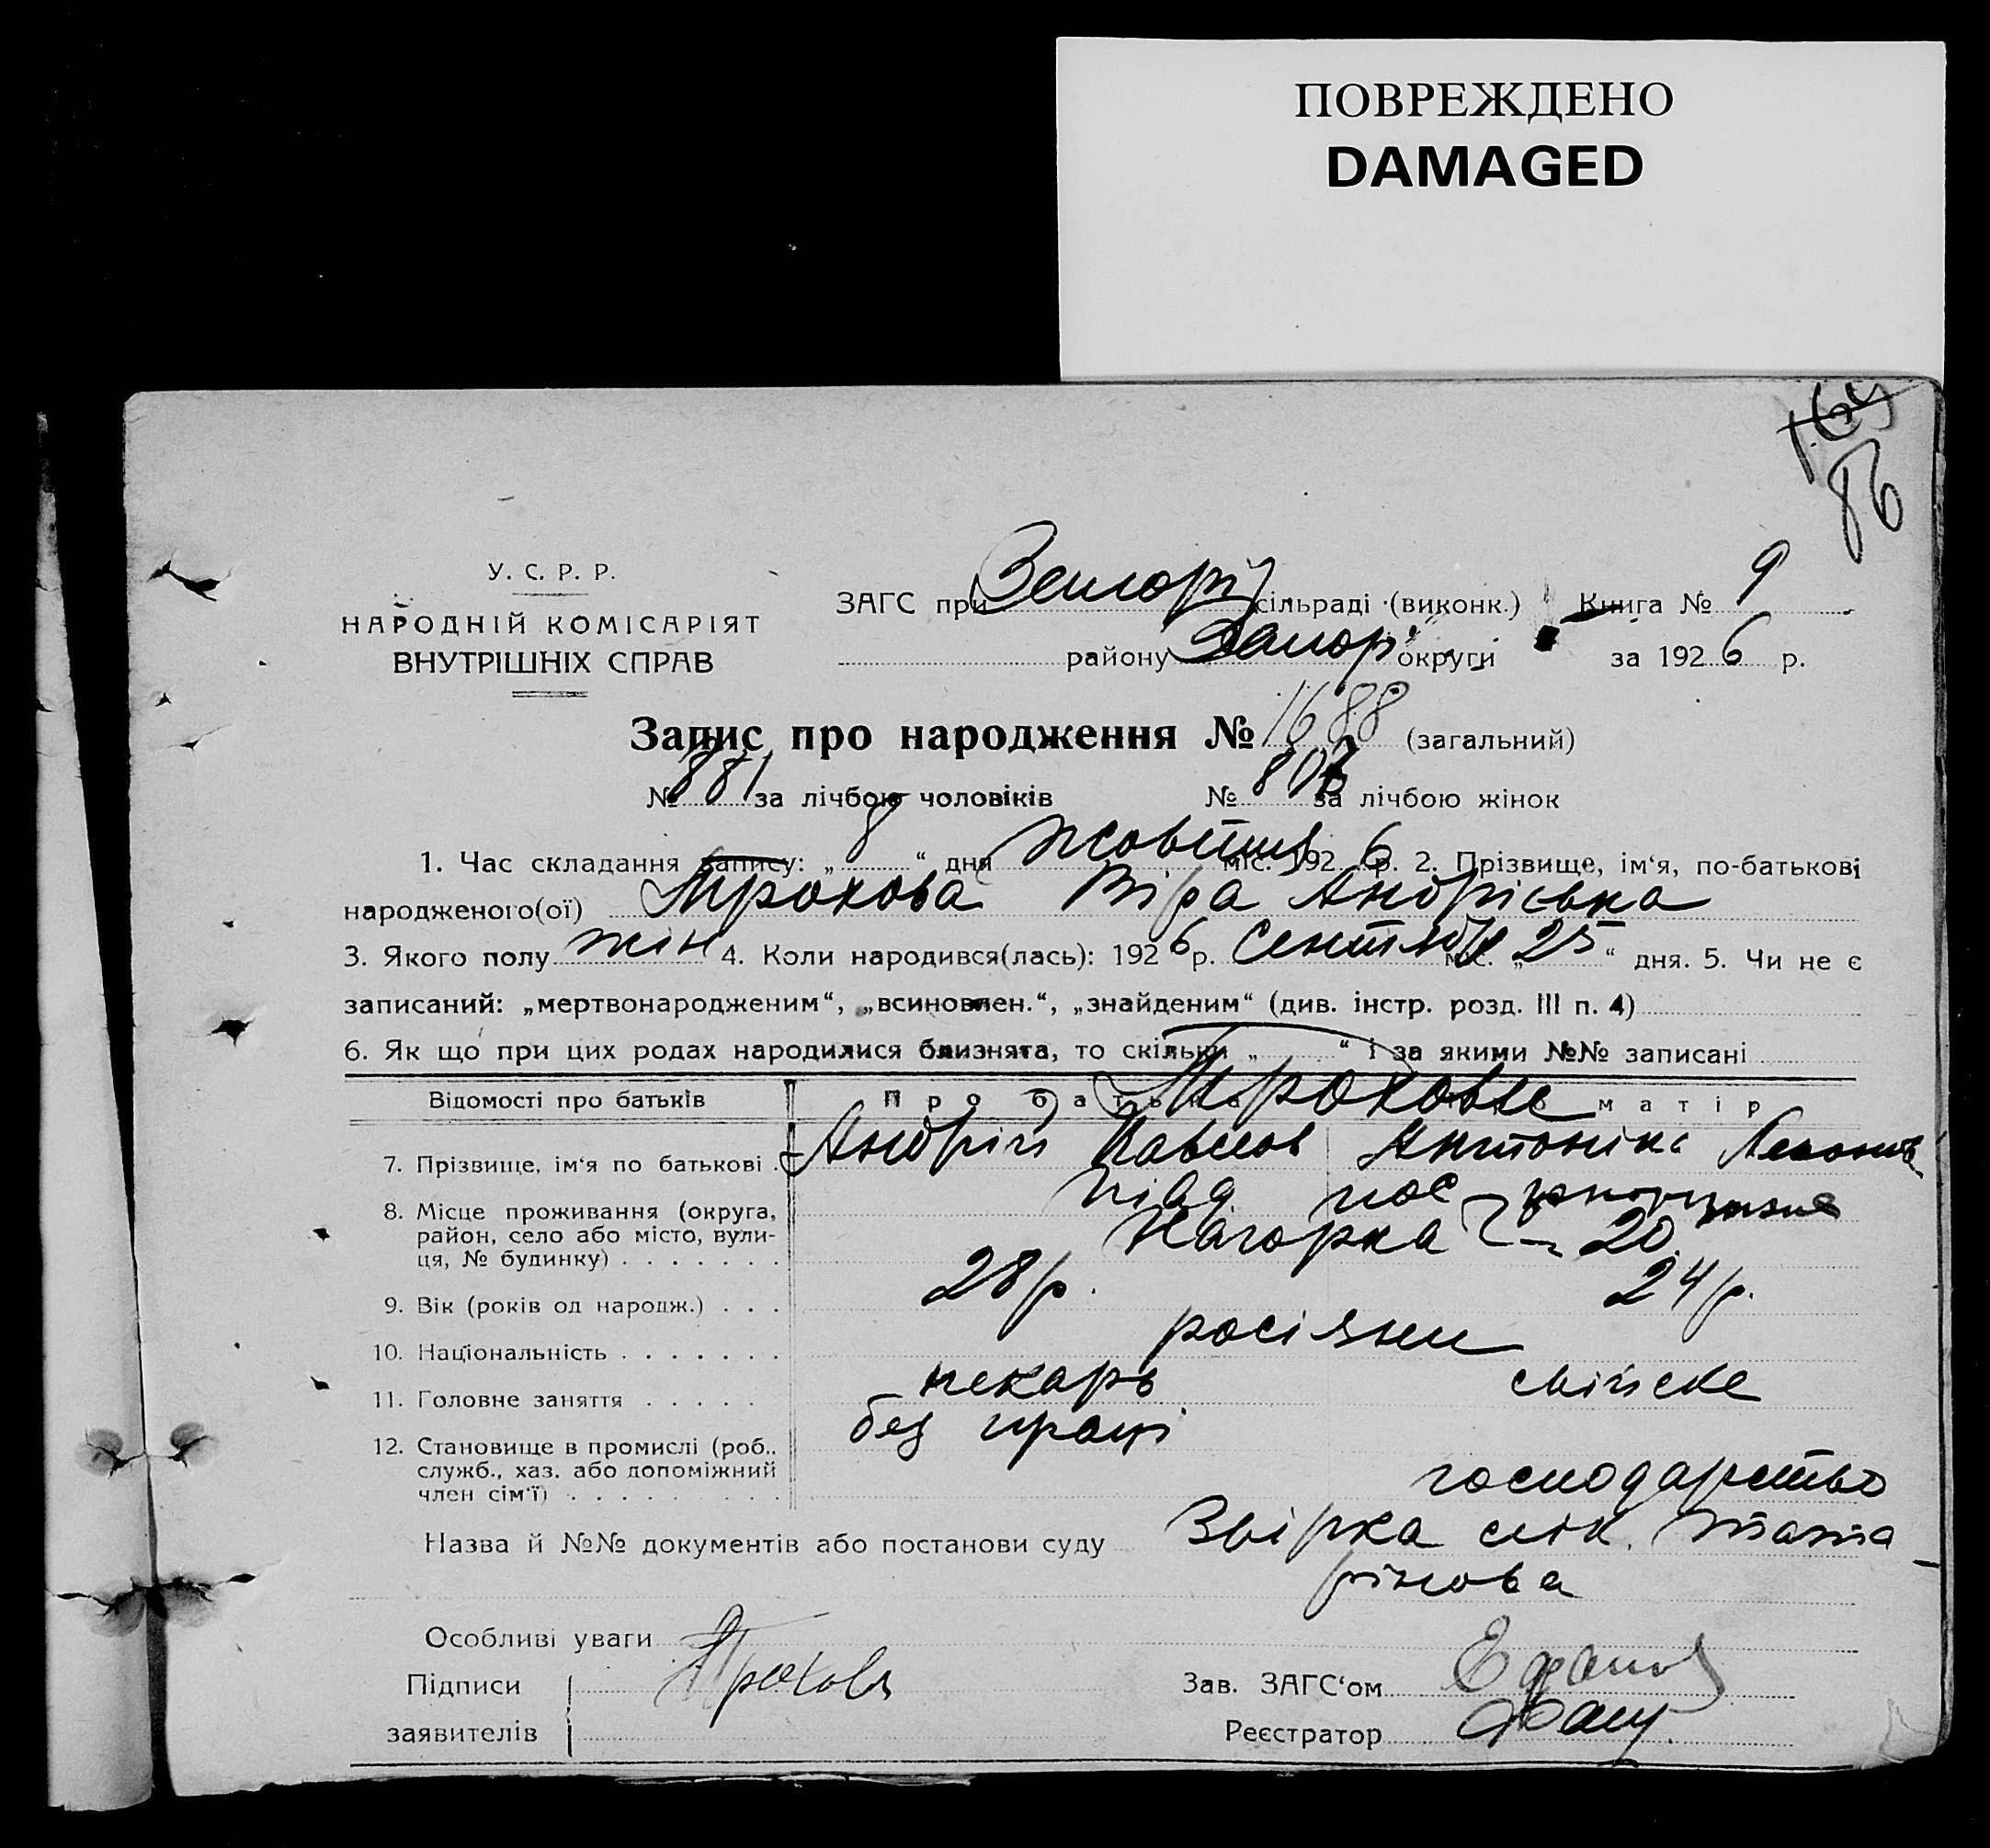 ПОВРЕЖДЕНО
DAMAGED
164
86
У. С. Р. Р.
НАРОДНІЙ КОМІСАРІЯТ
ВНУТРІШНІХ СПРАВ
ЗАГС при сільраді (виконк.) Книга № 9
району Запор округи за 1926 р.
Запис про народження № 1688 (загальний)
№ 881 за лічбою чоловіків № 807 за лічбою жінок
1. Час складання запису: „8“ дня Жовтня міс. 1926 р. 2. Прізвище, ім‘я, по-батькові
народженого(ої) Трохова Віра Андрієвна
3. Якого полу жін 4. Коли народився(лась): 1926 р. Сентября міс. „25“ дня. 5. Чи не є
записаний: „мертвонародженим“, „всиновлен.“, „знайденим“ (див. інстр. розд. III п. 4)
6. Як що при цих родах народилися близнята, то скільки „ “ і за якими №№ записані
Відомості про батьків Про батька Про матір
Трохови
7. Прізвище, ім‘я по батькові Андрій Павлов Антоніна Леонтів
8. Місце проживання (округа, Півд пос
район, село або місто, вули- Нагорна 20
ця, № будинку)
9. Вік (років од народж.) 28 р. 24 р.
10. Національність росіяни
11. Головне заняття пекарь свійске
12. Становище в промислі (роб., без праці
служб., хаз. або допоміжний господарство
член сім‘ї)
Назва й №№ документів або постанови суду Звірка лік. Тата
рінова
Особливі уваги
Підписи Трохов Зав. ЗАГС‘ом
заявителів Реєстратор